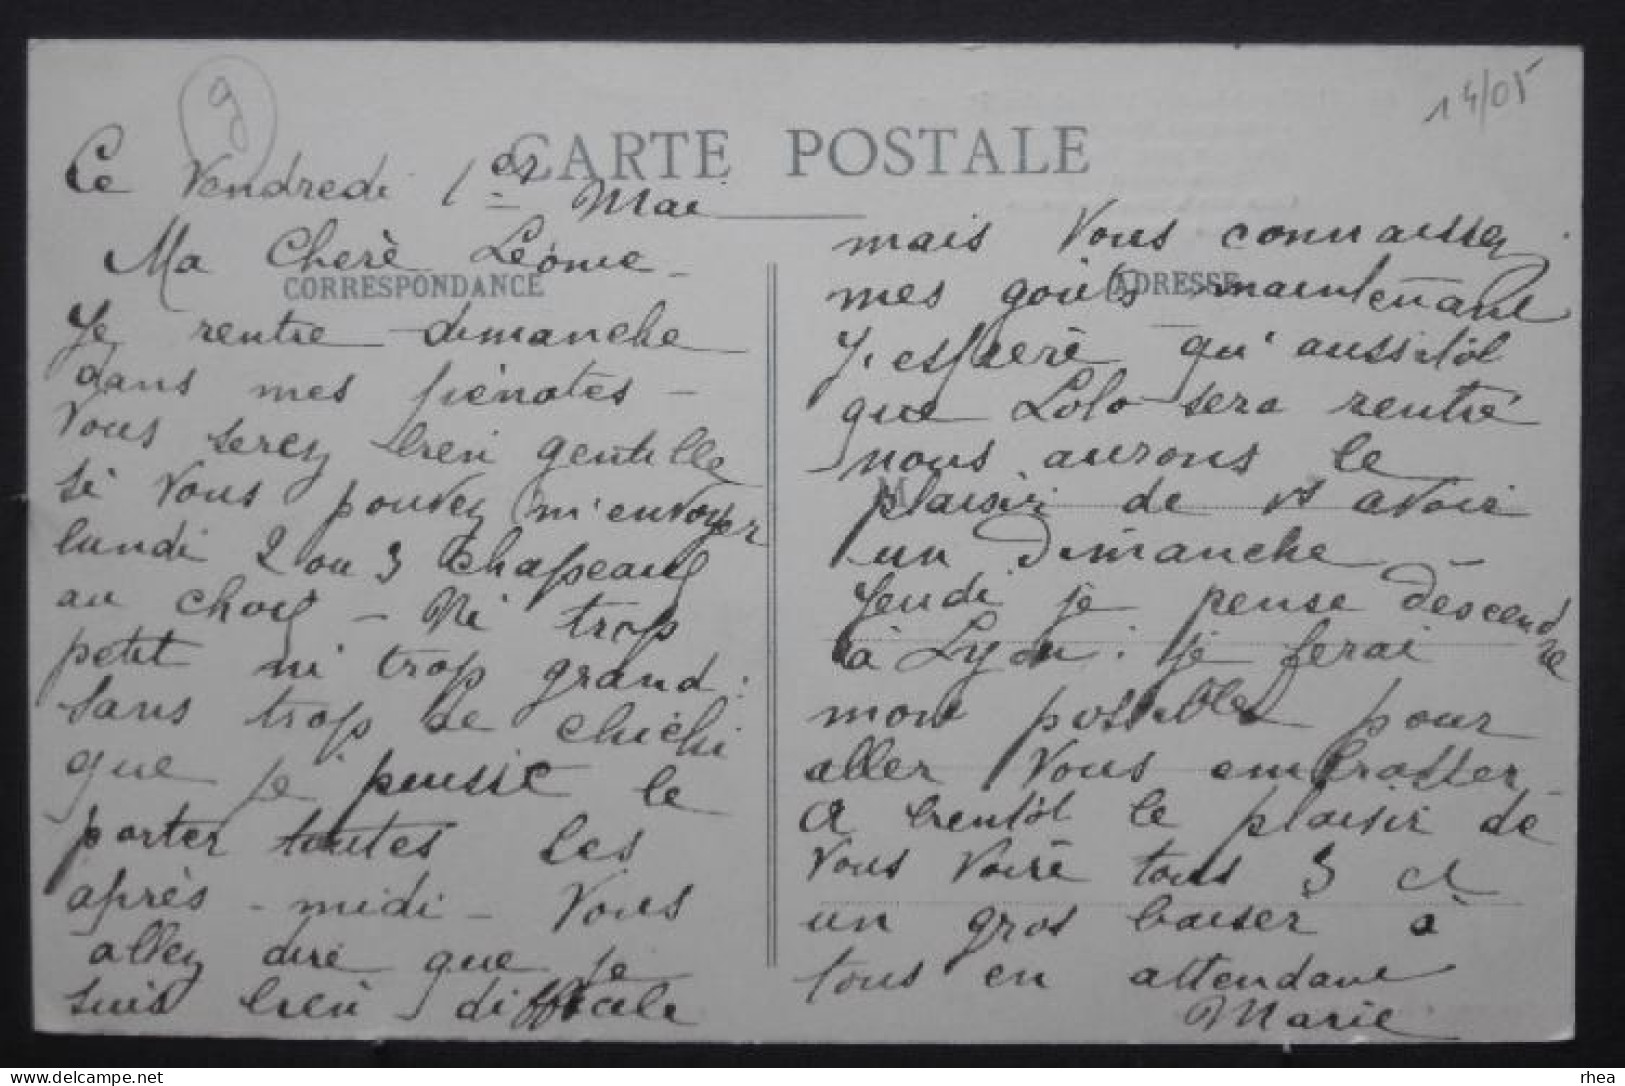 g
14/05
CARTE POSTALE
Ce Vendredi 1er Mai
Ma Cherè Léonie
CORRESPONDANCE
Je rentre dimanche
dans mes pénates -
Vous serez bien gentille
si Vous pouvez m'envoyer
lundi 2 ou 3 Chapeaux
au choix - Ni trop
petit ni trop grand :
sans trop de chichi
que je puisse le
porter toutes les
après - midi - Vous
allez dire que je
suis bien difficile
ADRESSE
mais Vous connaissez
mes goûts maintenant
J'esperè qu'aussitôt
que Lolo sera rentré
nous aurons le
plaisir de vs avoir
un Dimanche -
Jeudi je pense descendre
à Lyon : je ferai
mon possible pour
aller Vous embrasser
A bientôt le plaisir de
Vous Voire tous 3 et
un gros baiser à
tous en attendant
Marie
rhea